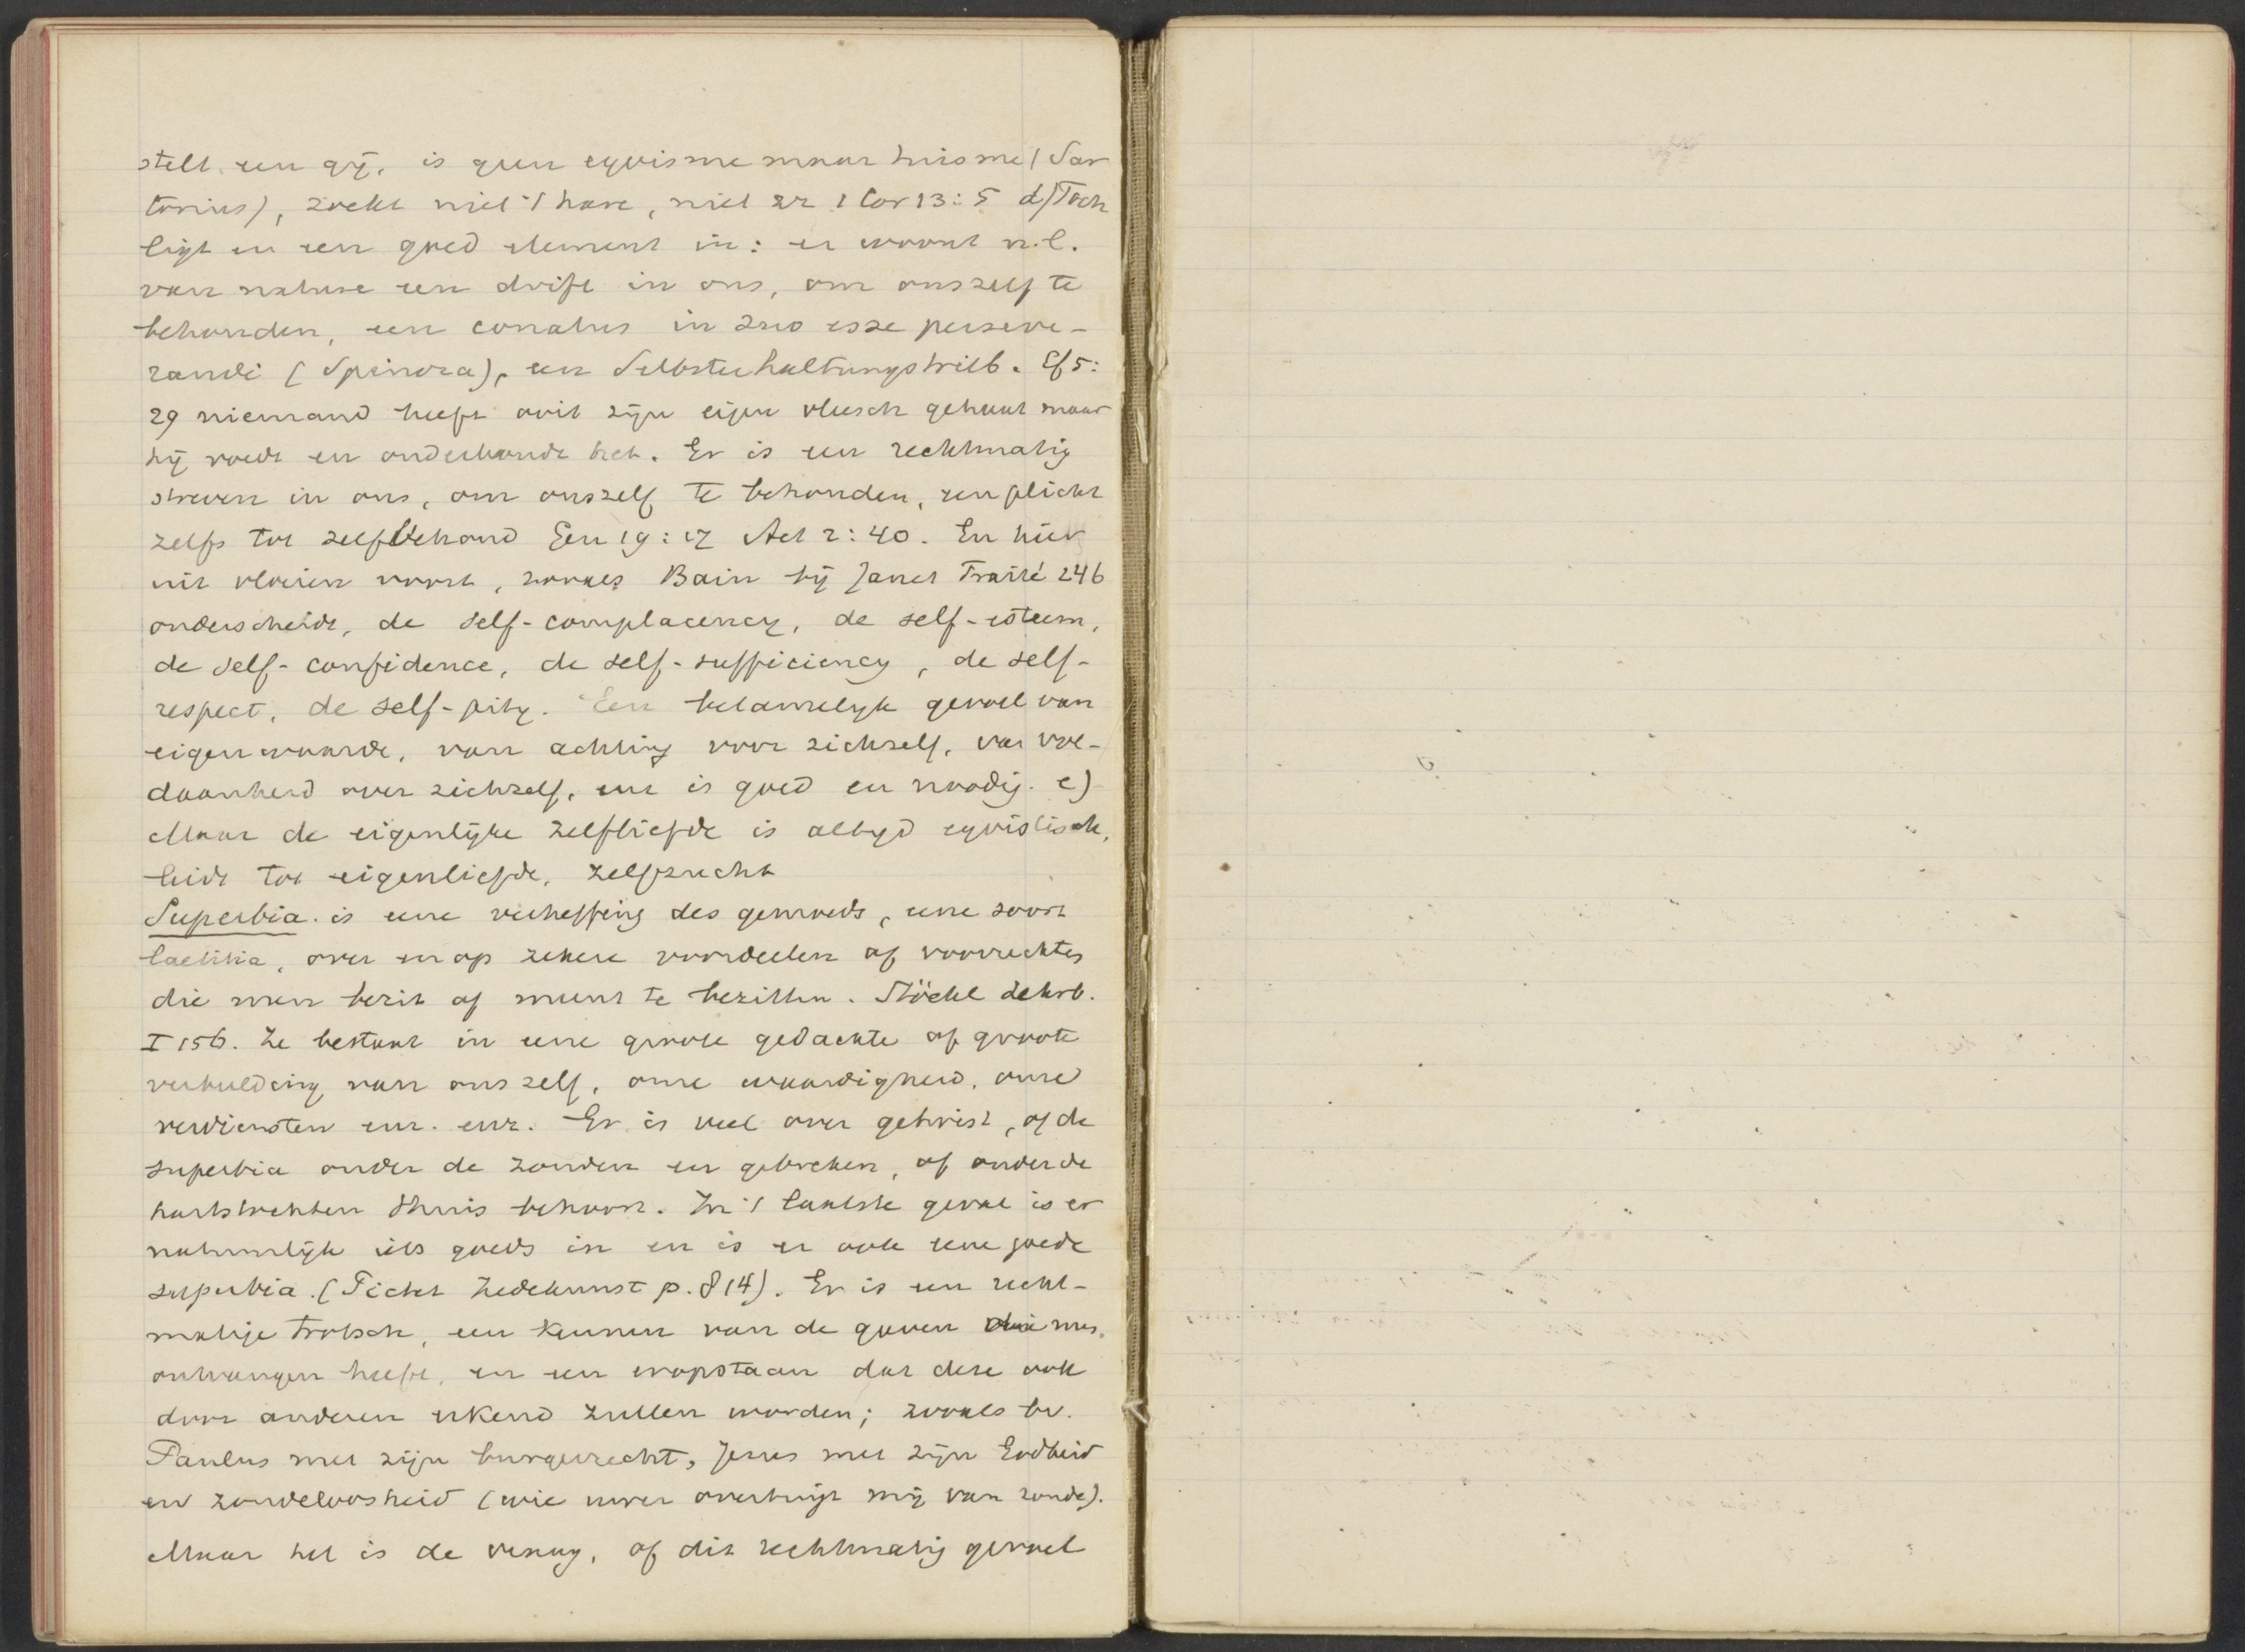 stelt een gij, is geen egoisme maar tuisme (Sar
torius), zoekt niet 't hare, niet zz 1 Cor 13:5 d) Toch
ligt er een goed element in: er woont n.l.
van nature een drift in ons, om onszelf te
behouden, een conatus in suo esse perseve-
randi (Spinoza), een Selbsterhaltungstrieb. Ef 5:
29 niemand heeft ooit zijn eigen vleesch gehaat maar
hij voedt en onderhoudt het. Er is een rechtmatig
streven in ons, om onszelf te behouden, een plicht
zelfs tot zelfbehoud Gen 19:17 Act 2:40. En hier
uit vloeien voort, zooals Bain bij Janet Traité 246
onderscheidt, de self-complacency, de self-esteem,
de self-confidence, de self-sufficiency, de self-
respect, de self-pity. Een betamelijk gevoel van
eigenwaarde, van achting voor zichzelf, van vol-
daanheid over zichzelf, enz is goed en noodig. e)
Maar de eigenlijke zelfliefde is altijd egoistisch,
leidt tot eigenliefde, zelfzucht
Superbia is eene verheffing des gemoeds, eene soort
laetitia, over en op zekere voordeelen of voorrechten
die men bezit of meent te bezitten. Stöckl Lehrb.
I 156. Ze bestaat in eene groote gedachte of groote
verbeelding van ons zelf, onze waardigheid, onze
verdiensten enz. enz. Er is veel over getwist, of de
superbia onder de zonden en gebreken, of onder de
hartstochten thuis behoort. In 't laatste geval is er
natuurlijk iets goeds in en is er ook eene goede
superbia. (Pictet Zedekunst p. 814). Er is een recht-
matige trotsch, een kennen van de gaven die men
ontvangen heeft, en een eropstaan dat deze ook
door anderen erkend zullen worden; zooals bv.
Paulus met zijn burgerrecht, Jezus met zijn Godheid
en zondeloosheid (wie uwer overtuigt mij van zonde).
Maar het is de vraag, of dit rechtmatig gevoel